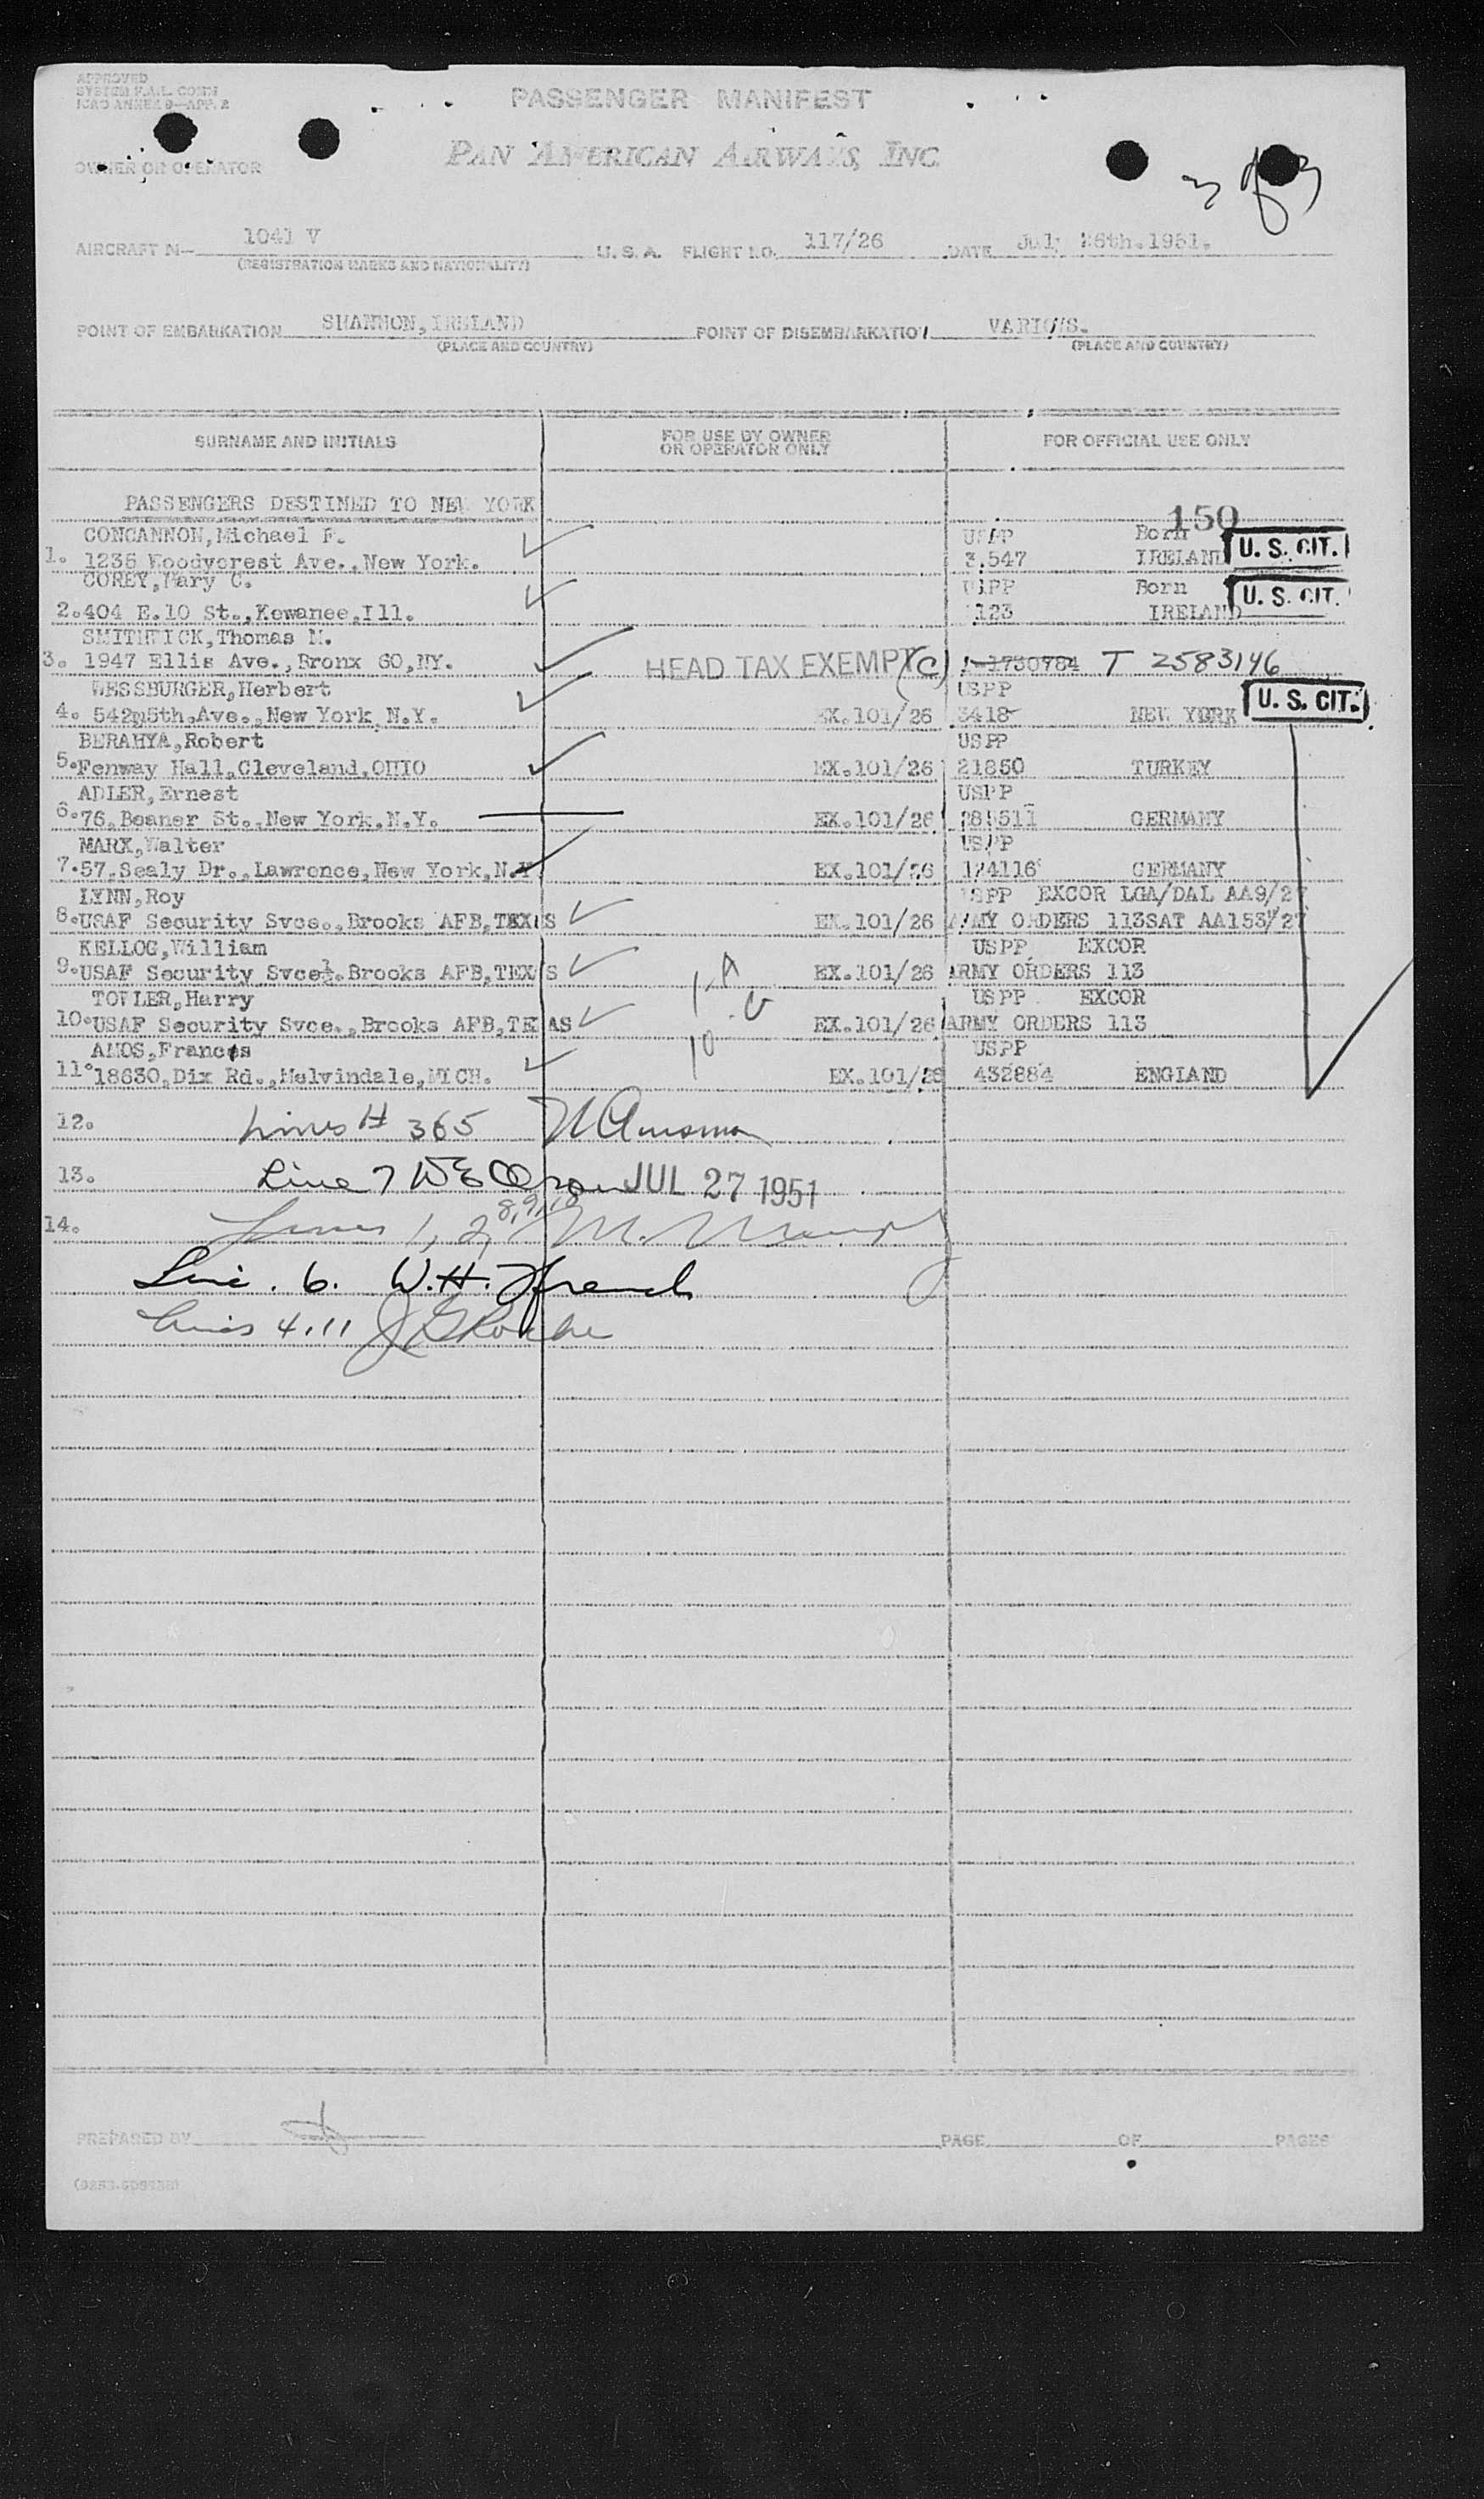 APPROVED
SYSTEM F.A.L. COMM
ICAO ANNEX 9—APP. 2
PASSENGER MANIFEST
OWNER OR OPERATOR
PAN AMERICAN AIRWAYS, INC.
3 of 3
AIRCRAFT N— 1041 V U. S. A. FLIGHT NO. 117/26 DATE July 26th.1951.
(REGISTRATION MARKS AND NATIONALITY)
POINT OF EMBARKATION SHANNON, IRELAND POINT OF DISEMBARKATION VARIOUS.
(PLACE AND COUNTRY) (PLACE AND COUNTRY)
SURNAME AND INITIALS FOR USE BY OWNER OR OPERATOR ONLY FOR OFFICIAL USE ONLY
PASSENGERS DESTINED TO NEW YORK
150
CONCANNON, Michael F. USPP Born
1. 1235 Woodycrest Ave., New York. 3.547 IRELAND U. S. CIT.
COREY, Mary C. USPP Born
2. 404 E.10 St., Kewanee, Ill. 123 IRELAND U. S. CIT.
SMITHWICK, Thomas M.
3. 1947 Ellis Ave., Bronx 60, NY. HEAD TAX EXEMPT (C) 1730784 T 2583146
WESSBURGER, Herbert USPP
4. 542 5th. Ave., New York N.Y. EX.101/26 3418 NEW YORK U. S. CIT.
BERAHYA, Robert USPP
5. Fenway Hall, Cleveland, OHIO EX.101/26 21850 TURKEY
ADLER, Ernest USPP
6. 76, Beaner St., New York, N.Y. EX.101/26 GERMANY
MARX, Walter USPP
7. 57, Sealy Dr., Lawrence, New York, N.Y EX.101/26 124116 GERMANY
LYNN, Roy USPP EXCOR LGA/DAL AA9/27
8. USAF Security Svce., Brooks AFB, TEXAS EX.101/26 ARMY ORDERS 113 SAT AA153/27
KELLOG, William USPP EXCOR
9. USAF Security Svce. Brooks AFB, TEXAS EX.101/26 ARMY ORDERS 113
TOWLER, Harry USPP EXCOR
10. USAF Security Svce., Brooks AFB, TEXAS EX.101/26 ARMY ORDERS 113
AMOS, Francis USPP
11. 18630, Dix Rd., Melvindale, MICH. EX.101/26 432884 ENGLAND
12. Lines # 3&5
13. Line 7 JUL 27 1951
14. Lines 1, 2, 8, 9, 10 M. Murphy
Line. 6. W. H. French
Lines 4, 11
PREPARED BY PAGE OF PAGES